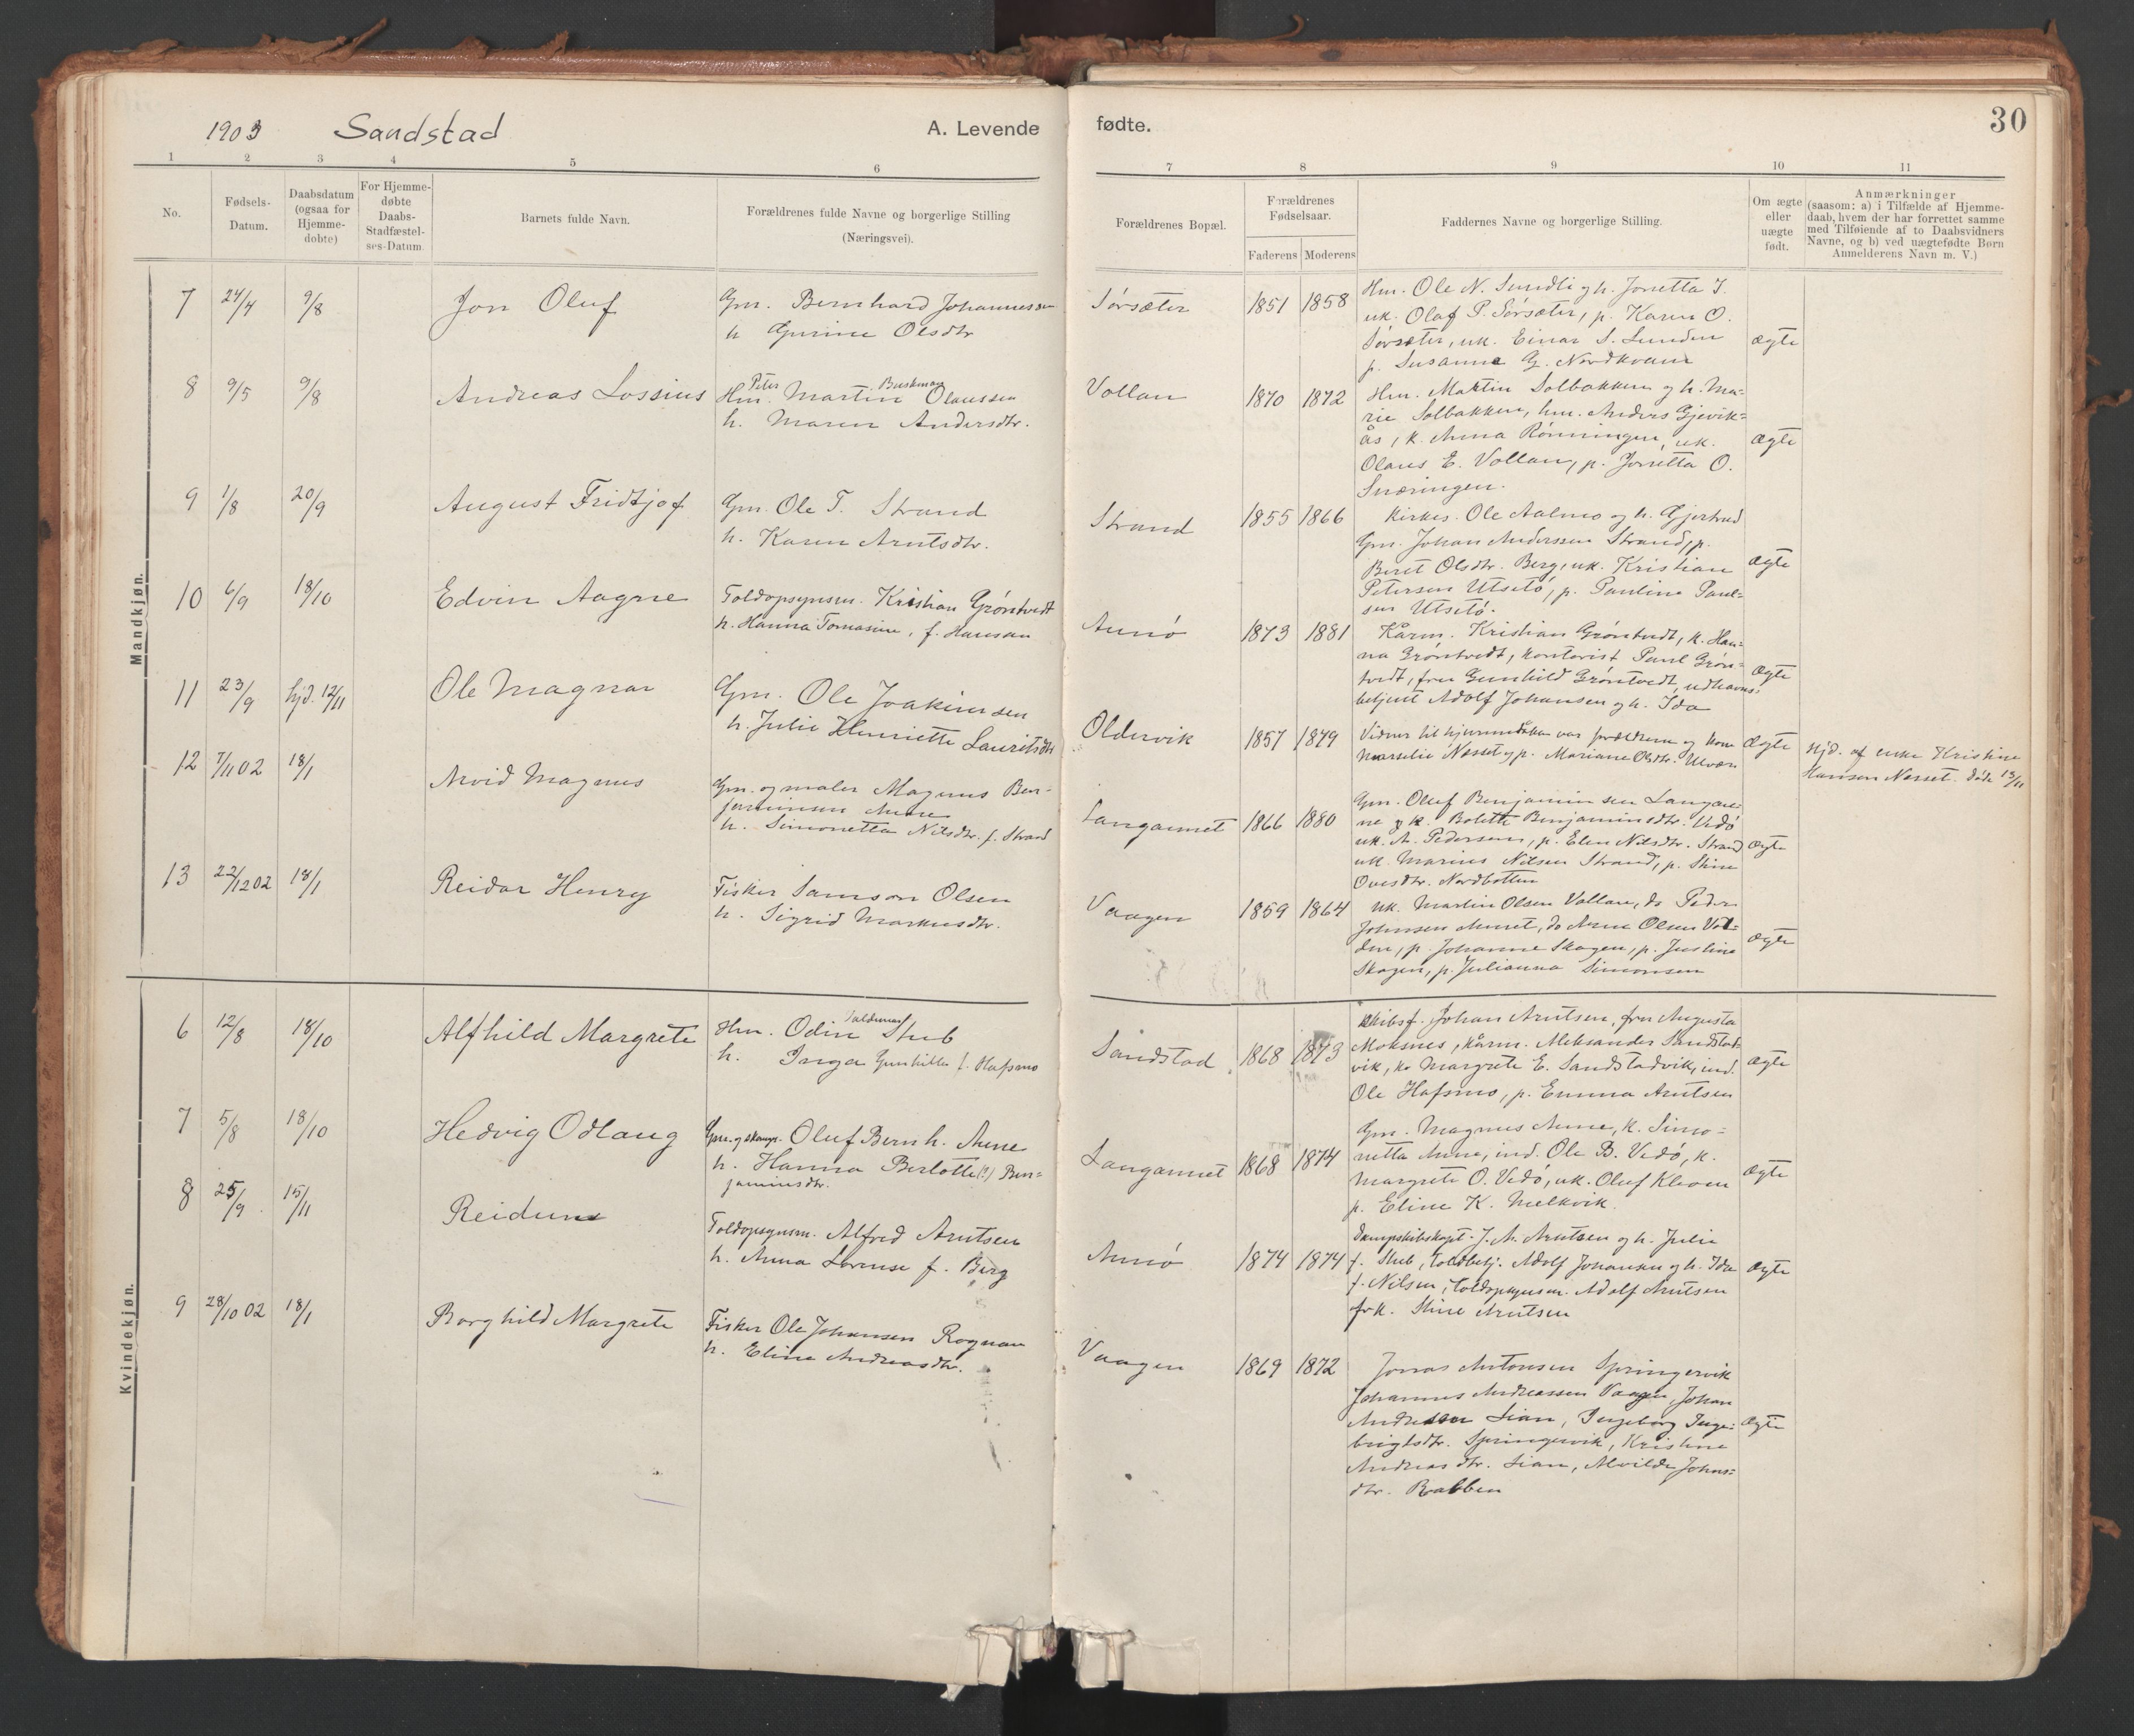 1903 Sandstad A. Levende
1 2 3 4 5 6
No.
Fødsels-
Datum.
Daabsdatum
(ogsaa for
Hjemme-
døbte)
For Hjemme-
døbte
Daabs-
Stadfæstel-
ses-Datum.
Barnets fulde Navn.
Forældrenes fulde Navne og borgerlige Stilling
(Næringsvei).
Mandkjøn.
7 24/4 9/8 Jon Oluf Gm. Bernhard Johannessen
h. Gurine Olsdtr
8 9/5 9/8 Andreas Lossius Hm. Peter Martin Buskmoe Olaussen
h. Maren Andersdtr.
9 1/8 20/9 August Fridtjof Gm. Ole T. Strand
h. Karen Arntsdtr.
10 6/9 18/10 Edvin Aagne Toldopsynsm. Kristian Grøntvedt
h. Hanna Tomasine, f. Hansen
11 23/9 hjd. 12/11 Ole Magnar Gm. Ole Joakimsen
h. Julie Henriette Lauritsdtr
12 7/11 02 18/1 Arvid Magnus Gm. og maler Magnus Ben-
jaminsen Aune
h. Simonetta Nilsdtr. f. Strand
13 22/12 02 18/1 Reidar Henry Fisker Samson Olsen
h. Sigrid Markusdtr.
Kvindekjøn.
6 12/8 18/10 Alfhild Margrete Hm. Odin Stub
h. Inga Gunhilda f. Hafsmo
7 5/8 18/10 Hedvig Odlaug Gm. og skomgr. Oluf Bernh. Aune
h. Hanna Berlotte (?) Ben-
jaminsdtr.
8 25/9 15/11 Reidun Toldopsynsm. Alfred Arntsen
h. Anna Lovense f. Berg
9 28/10 02 18/1 Borghild Margrete Fisker Ole Johansen Rognan
h. Eline Andreasdtr.
fødte. 30
7 8 9 10 11
Forældrenes Bopæl.
Forældrenes
Fødselsaar.
Faderens Moderens
Faddernes Navne og borgerlige Stilling.
Om ægte
eller
uægte
født.
Anmærkninger
(saasom: a) i Tilfælde af Hjemme-
daab, hvem der har forrettet samme
med Tilføiende af to Daabsvidners
Navne, og b) ved uægtefødte Børn
Anmelderens Navn m. V.)
Sørsæter 1851 1858 Hm. Ole N. Sundli og h. Jonetta J.
uk. Olaf P. Sørsæter, p. Karen O.
Sørsæter, uk. Einar S. Sunden
p. Susanna G. Nordkvam
ægte
Vollan 1870 1872 Hm. Martin Solbakken og h. Ma-
rie Solbakken, hm. Anders Gjevik-
ås, k. Anna Rønningen, uk.
Olaus E. Vollan, p. Jonetta O.
Snæringen.
ægte
Strand 1855 1866 Kirkes. Ole Aalmo og h. Gjertrud
Gm. Johan Anderssen Strand, p.
Beret Olsdtr. Berg, uk. Kristian
Petersen Utsetø, p. Pauline Paul-
sen Utsetø.
ægte
Aunø 1873 1881 Kårm. Kristian Grøntvedt, k. Han-
na Grøntvedt, kontorist Paul Grøn-
tvedt, fru Gunhild Grøntvedt, udhavns-
betjent Adolf Johansen og h. Ida
ægte
Oldervik 1857 1879 Vidner til hjemmedåben var forældrene og kone
Marselie Næsset og p. Mariane Olsdtr. Ulvøen
ægte
Hjd. af enke Kristine
Hansen Nesset. Døde 13/11
Langaunet 1866 1880 Gm. Oluf Benjaminsen Langau-
ne og k. Bolette Benjaminsdtr. Vedø
uk. A. Pedersen, p. Elen Nilsdtr. Strand
uk. Marius Nilsen Strand, p. Stine
Ovesdtr. Nordbotten
ægte
Vaagen 1859 1864 uk. Martin Olsen Vollan, do Peder
Johnsen Aunet, do Arne Olsen Vol-
den, p. Johanne Skagen, p. Justine
Skagen, p. Julianna Simonsen
ægte
Sandstad 1868 1873 Skibsf. Johan Arntsen, fru Augusta
Moksnes, kårm. Aleksander Sandstad-
vik, k. Margrete E. Sandstadvik, ind.
Ole Hafsmo, p. Emma Arntsen
ægte
Langaunet 1868 1874 Gm. Magnus Aune, k. Simo-
netta Aune, ind. Ole B. Vedø, k.
Margrete O. Vedø, uk. Oluf Kleven
p. Eline K. Melkvik
ægte
Aunø 1874 1874 Dampskibskapt. J. A. Arntsen og h. Julie
f. Stub, toldbetj. Adolf Johansen og h. Ida
f. Nilsen, toldopsynsm. Adolf Arntsen
frk. Stine Arntsen
ægte
Vaagen 1869 1872 Jonas Antonsen Springervik
Johannes Andreassen Vaagen, Johan
Andreassen Lian, Ingeborg Inge-
brigtsdtr. Springervik, Kristine
Andreasdtr. Lian, Alvilde Johns-
dtr. Rabben
ægte